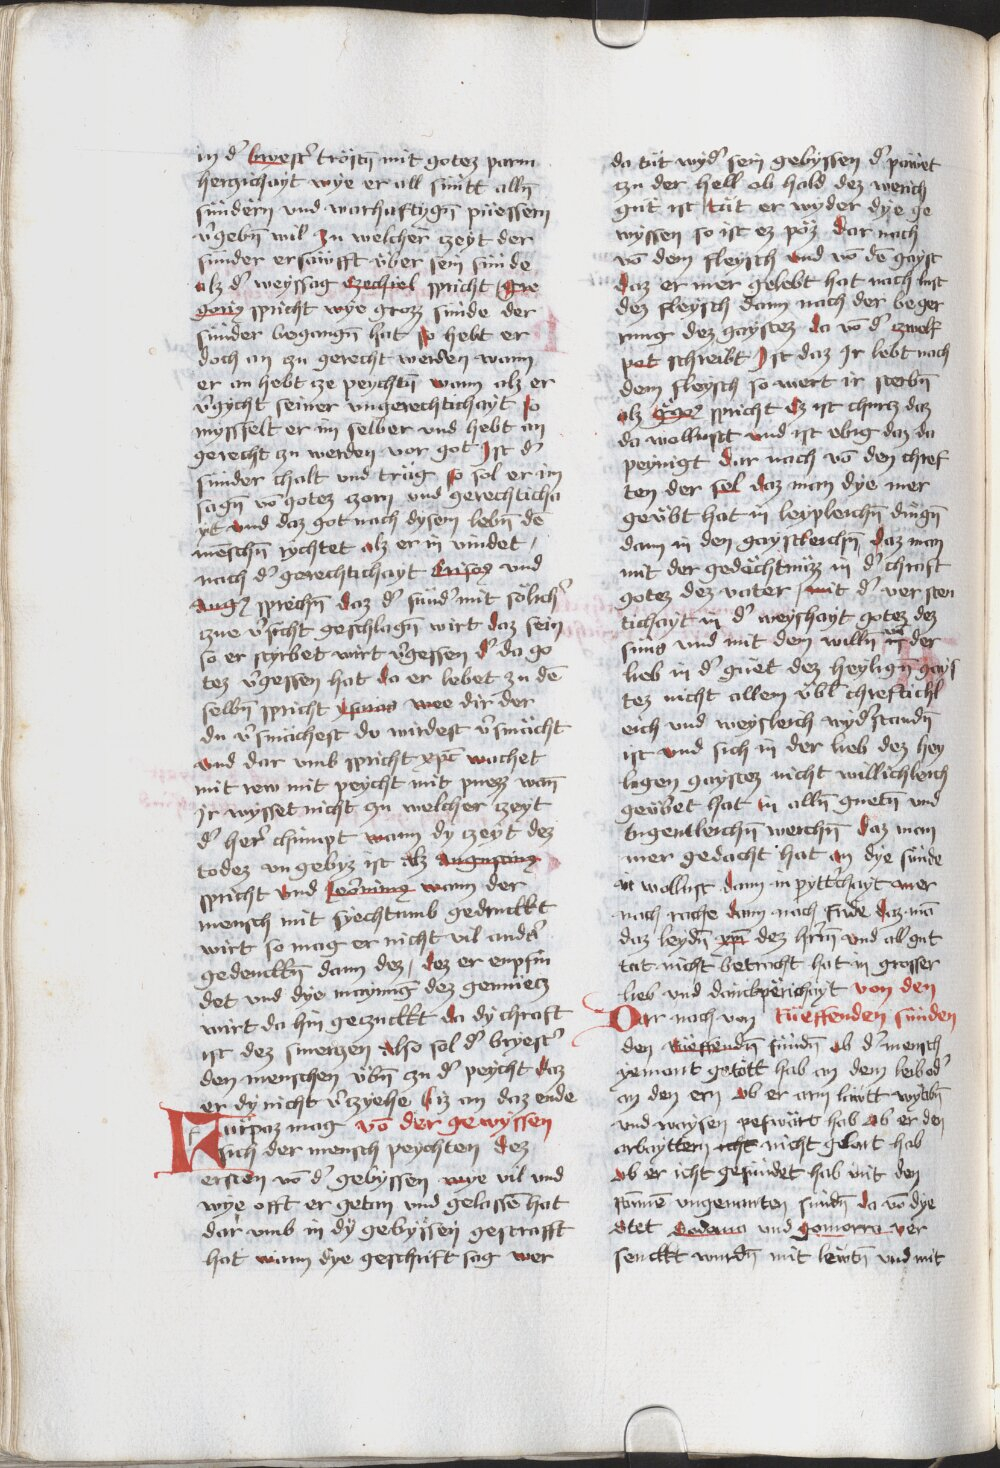 in d' bryest' tröstn̄ mit gotez parm
herczichayt wye er all sünt alln̄
sündern vnd warhaftygn̄ püessern
v'gebn̄ wil In welcher czeyt der
sünder ersäwfft über sein sünde
alz d' weyssag Ezechiel spricht Gre
gori9 spricht wye grozz sünde der
sünder begangn̄ hat so hebt er
doch an czu gerecht werden wann
er an hebt cze peychtn̄ wann alz er
v'gycht seiner vngerechtichayt so
mysfelt er im selber vnd hebt an
gerecht czu werden vor got Ist d'
sünder chalt vnd träg so sol er im
sagn̄ vō gotez czorn vnd gerechticha
yt vnd daz got nach dysem lebn̄ dē
menschn̄ rychtet alz er in vindet
nach d' gerechtichayt Crisos9 vnd
Aug9 sprechn̄ daz d' sünd' mit sölich'
czue v'sicht geschlagn̄ wirt daz sein
so er styrbet wirt v'gessen d' da go
tez v'gessen hat da er lebet zu dē
selbn̄ spricht ysaias wee dir der
du v'smächest du wirdest v'smächt
vnd dar vmb spricht xp̄c wachet
mit rew mit peycht mit puez wan̄
Ir wysset nicht czu welcher czeyt
d' her' chümpt wann dy czeyt dez
todez vngebyz ist Alz Augustin9
spricht vnd Ieronim9 wann der
mensch mit syechtumb gedruckt
wirt so mag er nicht vil and'
gedenckn̄ dann dez / dez er enpfin
det vnd dye maynüg dez gemüetz
wirt da hin geczuckt da dy chraft
ist dez smerczen also sol d' bryest'
den menschen übn̄ czu d' peycht daz
er dy nicht v'czyehe biz an daz ende
Fürpaz mag vō der gewyssen
sich der mensch peychten dez
ersten vō d' gebyssen wye vil vnd
wye offt er getan vnd gelassē hat
dar vmb in dy gebyssen gestrafft
hat wann dye geschrift sag wer
da tüt wyd' sein gebyssen d' pawet
czu der hell ob hald dez werich
gut ist tüt er wyder dye ge
wyssen so ist ez pöz dar nach
vō dem fleysch vnd vō dē gayst
daz er mer gelebt hat nach lust
dez fleysch dann nach der beger
ung dez gaystez da vō d' czwelf
pot schreibt Ist daz Ir lebt nach
dem fleysch so wert ir sterbn̄
alz spricht Ez ist churcz daz
da wollustt vnd ist ebig daz da
peynigt Dar nach vō den chref
ten der sel daz man dye mer
geübt hat in leypleichn̄ dingn̄
dann in den gaystleichn̄ daz man
mit der gedächtnüzz in d' chraft
gotez dez vater / mit d' versten
tichayt in d' weyshayt gotez dez
suns vnd mit dem willn̄ in der
lieb in d' güet dez heylign̄ gays
tez nicht allem übl chreftichl
eich vnd weysleich wyd'standn̄
ist vnd sich in der lieb dez hey
ligen gaystez nicht willichleich
geübet hat in alln̄ guetn̄ vnd
tugentleichn̄ werchn̄ daz man
mer gedacht hat an dye sünde
in wollust dann in pytt'chayt mer
nach rache dann nach fride daz mā
daz leydn̄ xp̄i dez hrr̄n vnd all gut
tat nicht betracht hat in grosser
lieb vnd danckperichayt von den
Dar nach von tüeffenden sünden
den rüeffendn̄ sündn̄ ob d' mensch
yemant getött hab an dem leib od'
an den ern ob er arm läwtt wytibn̄
vnd waysen peswärt hab ob er den
arbayttern icht nicht gelont hab
ob er icht gesündet hab mit den
stümē vngenanten sündn̄ da vō dye
stet Sodoma vnd Gomorra ver
senckt wurdn̄ mit lewtn̄ vnd mit